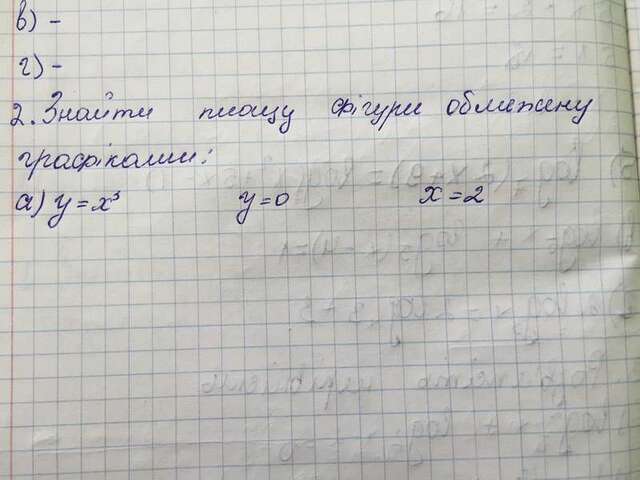 в) -
г) -
2. Знайти площу фігури обмежену
графіками:
а) y = x³ y = 0 x = 2